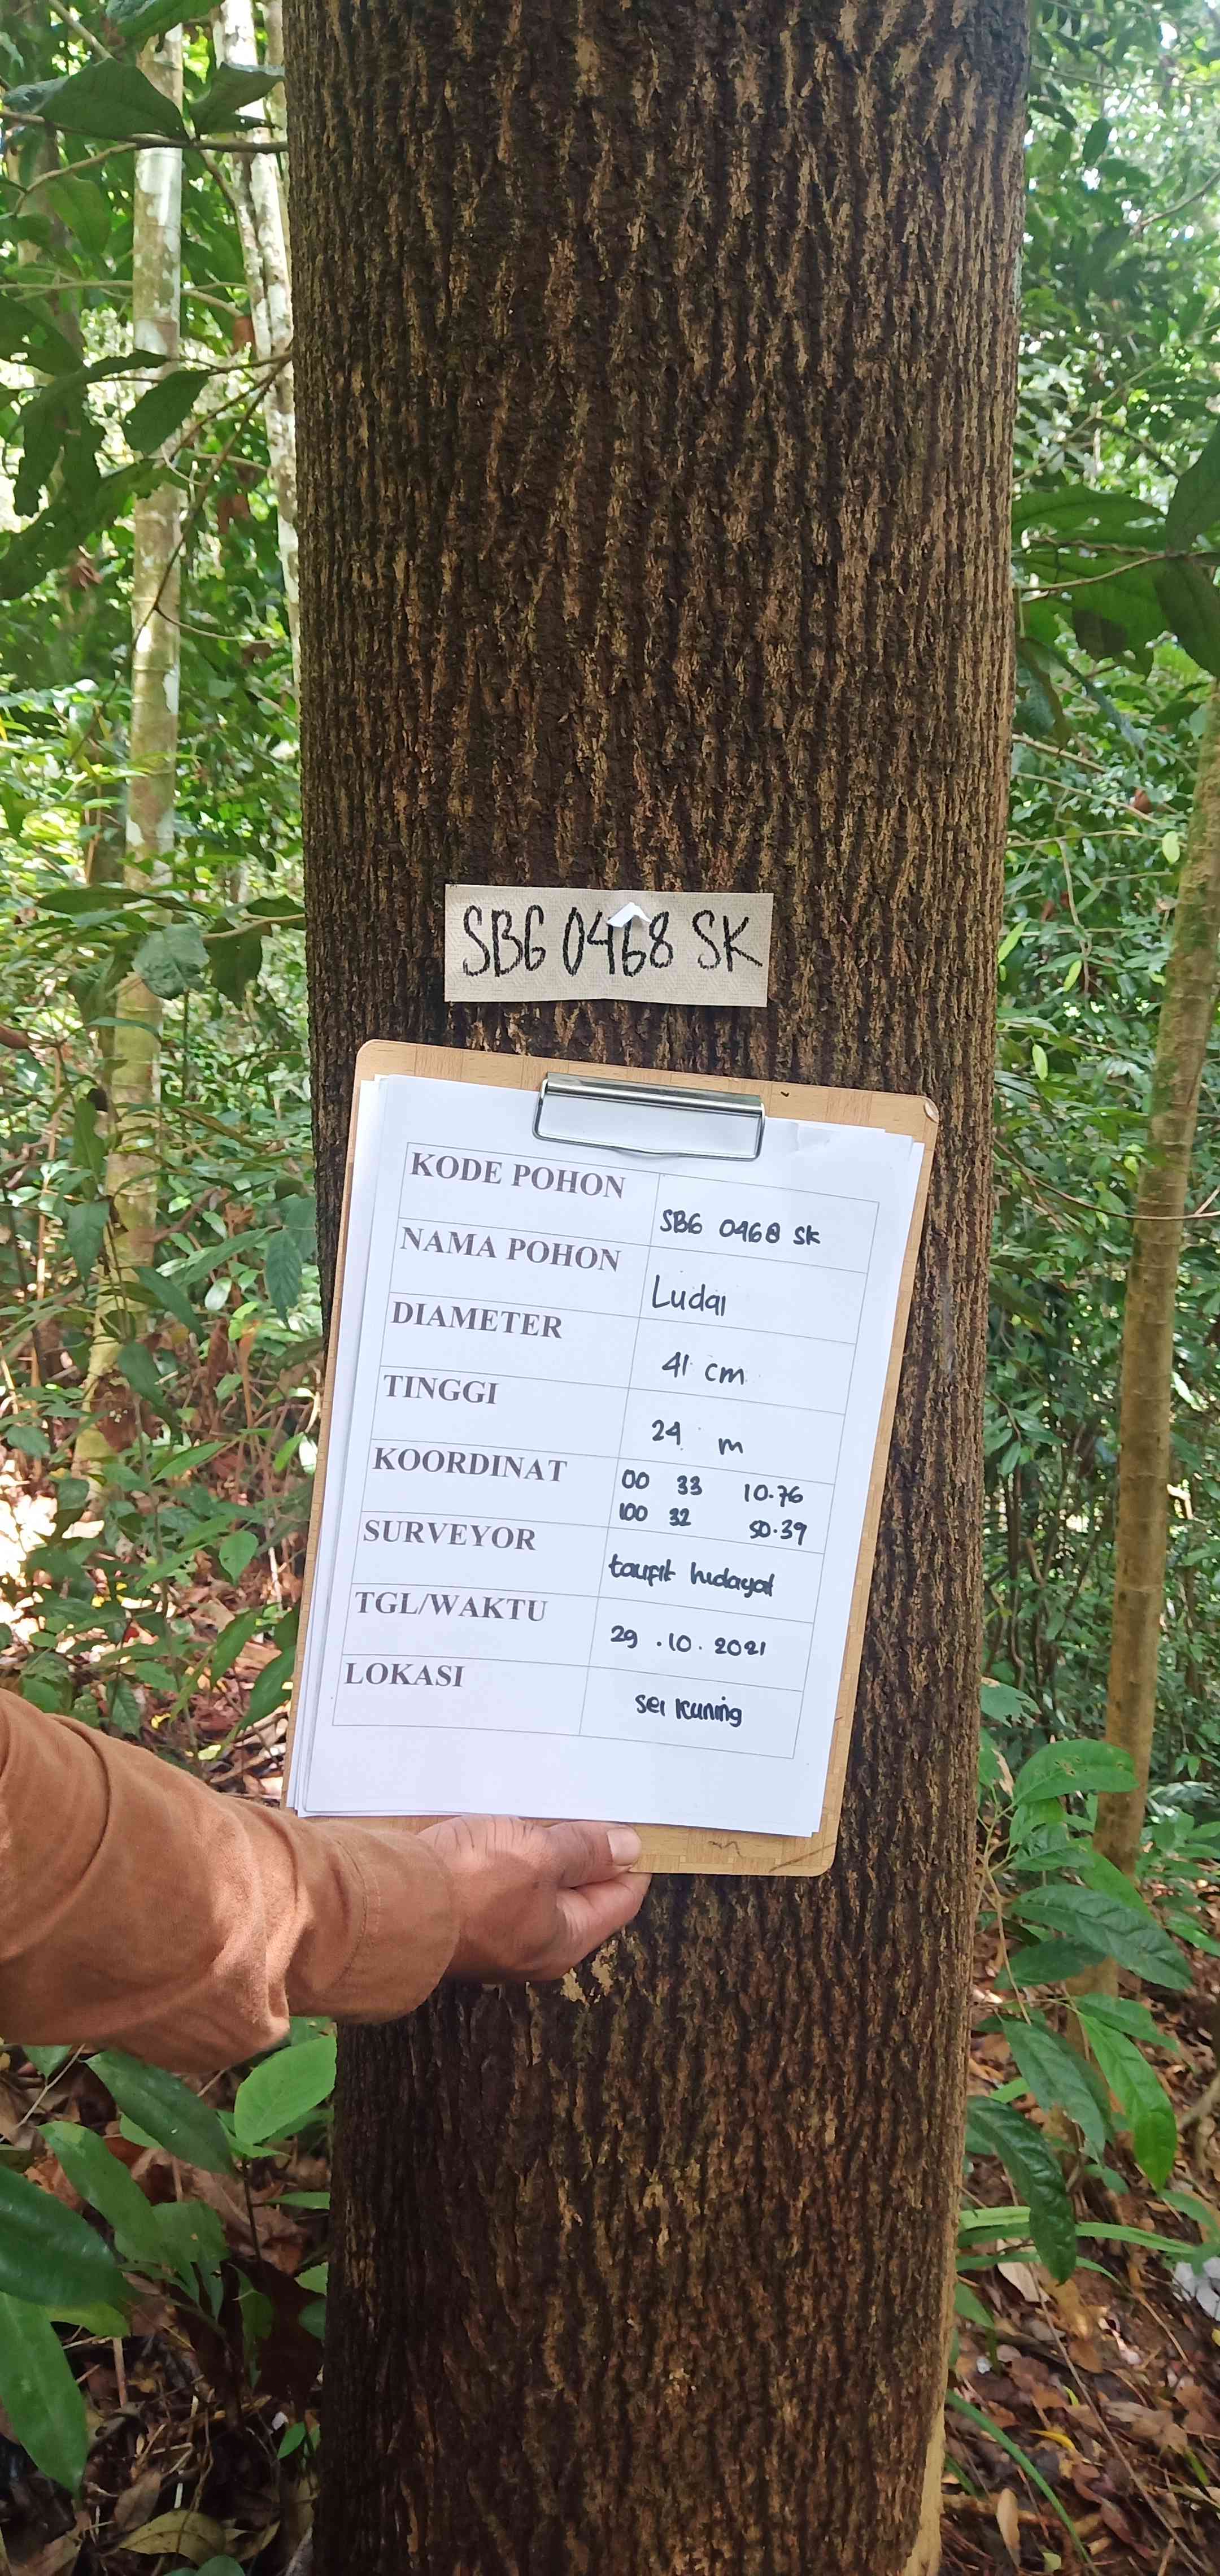 SBG 0468 SK
KODE POHON SBG 0468 SK
NAMA POHON Ludai
DIAMETER 41 cm
TINGGI 24 m
KOORDINAT 00 33 10.76
100 32 50.39
SURVEYOR taupit hidayat
TGL/WAKTU 29.10.2021
LOKASI sei kuning